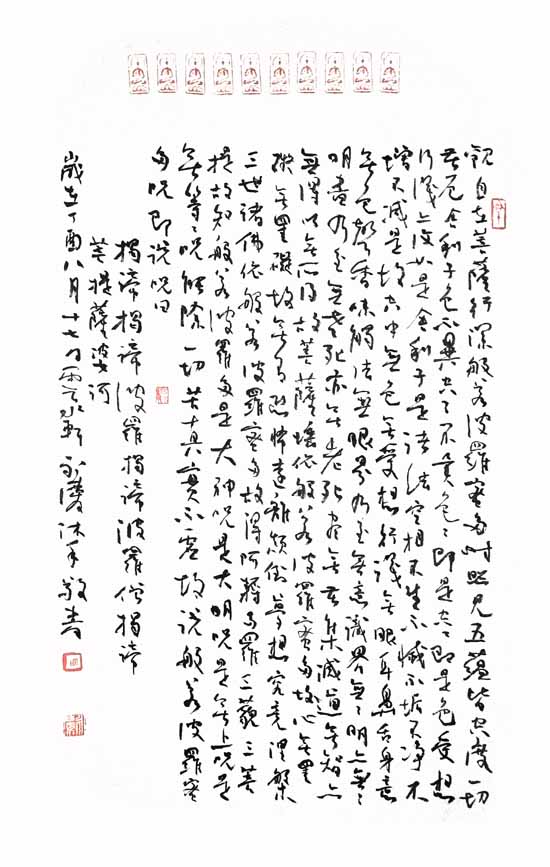 觀自在菩薩行深般若波羅蜜多時照見五蘊皆空度一切
苦厄舍利子色不異空々不異色々即是空々即是色受想
行識亦復如是舍利子是諸法空相不生不滅不垢不淨不
增不減是故空中無色無受想行識無眼耳鼻舌身意
無色聲香味觸法無眼界乃至無意識界無々明亦無々
明盡乃至無老死亦無老死盡無苦集滅道無智亦
無得以無所得故菩薩埵依般若波羅蜜多故心無罣
礙無罣礙故無有恐怖遠離顛倒夢想究竟涅槃
三世諸佛依般若波羅蜜多故得阿耨多羅三藐三菩
提故知般若波羅多是大神咒是大明咒是無上咒是
無等々咒能除一切苦真實不虛故說般若波羅蜜
多咒即說咒曰
揭諦揭諦波羅揭諦波羅僧揭諦
菩提薩婆訶
歲在丁酉八月十七日沐手敬書